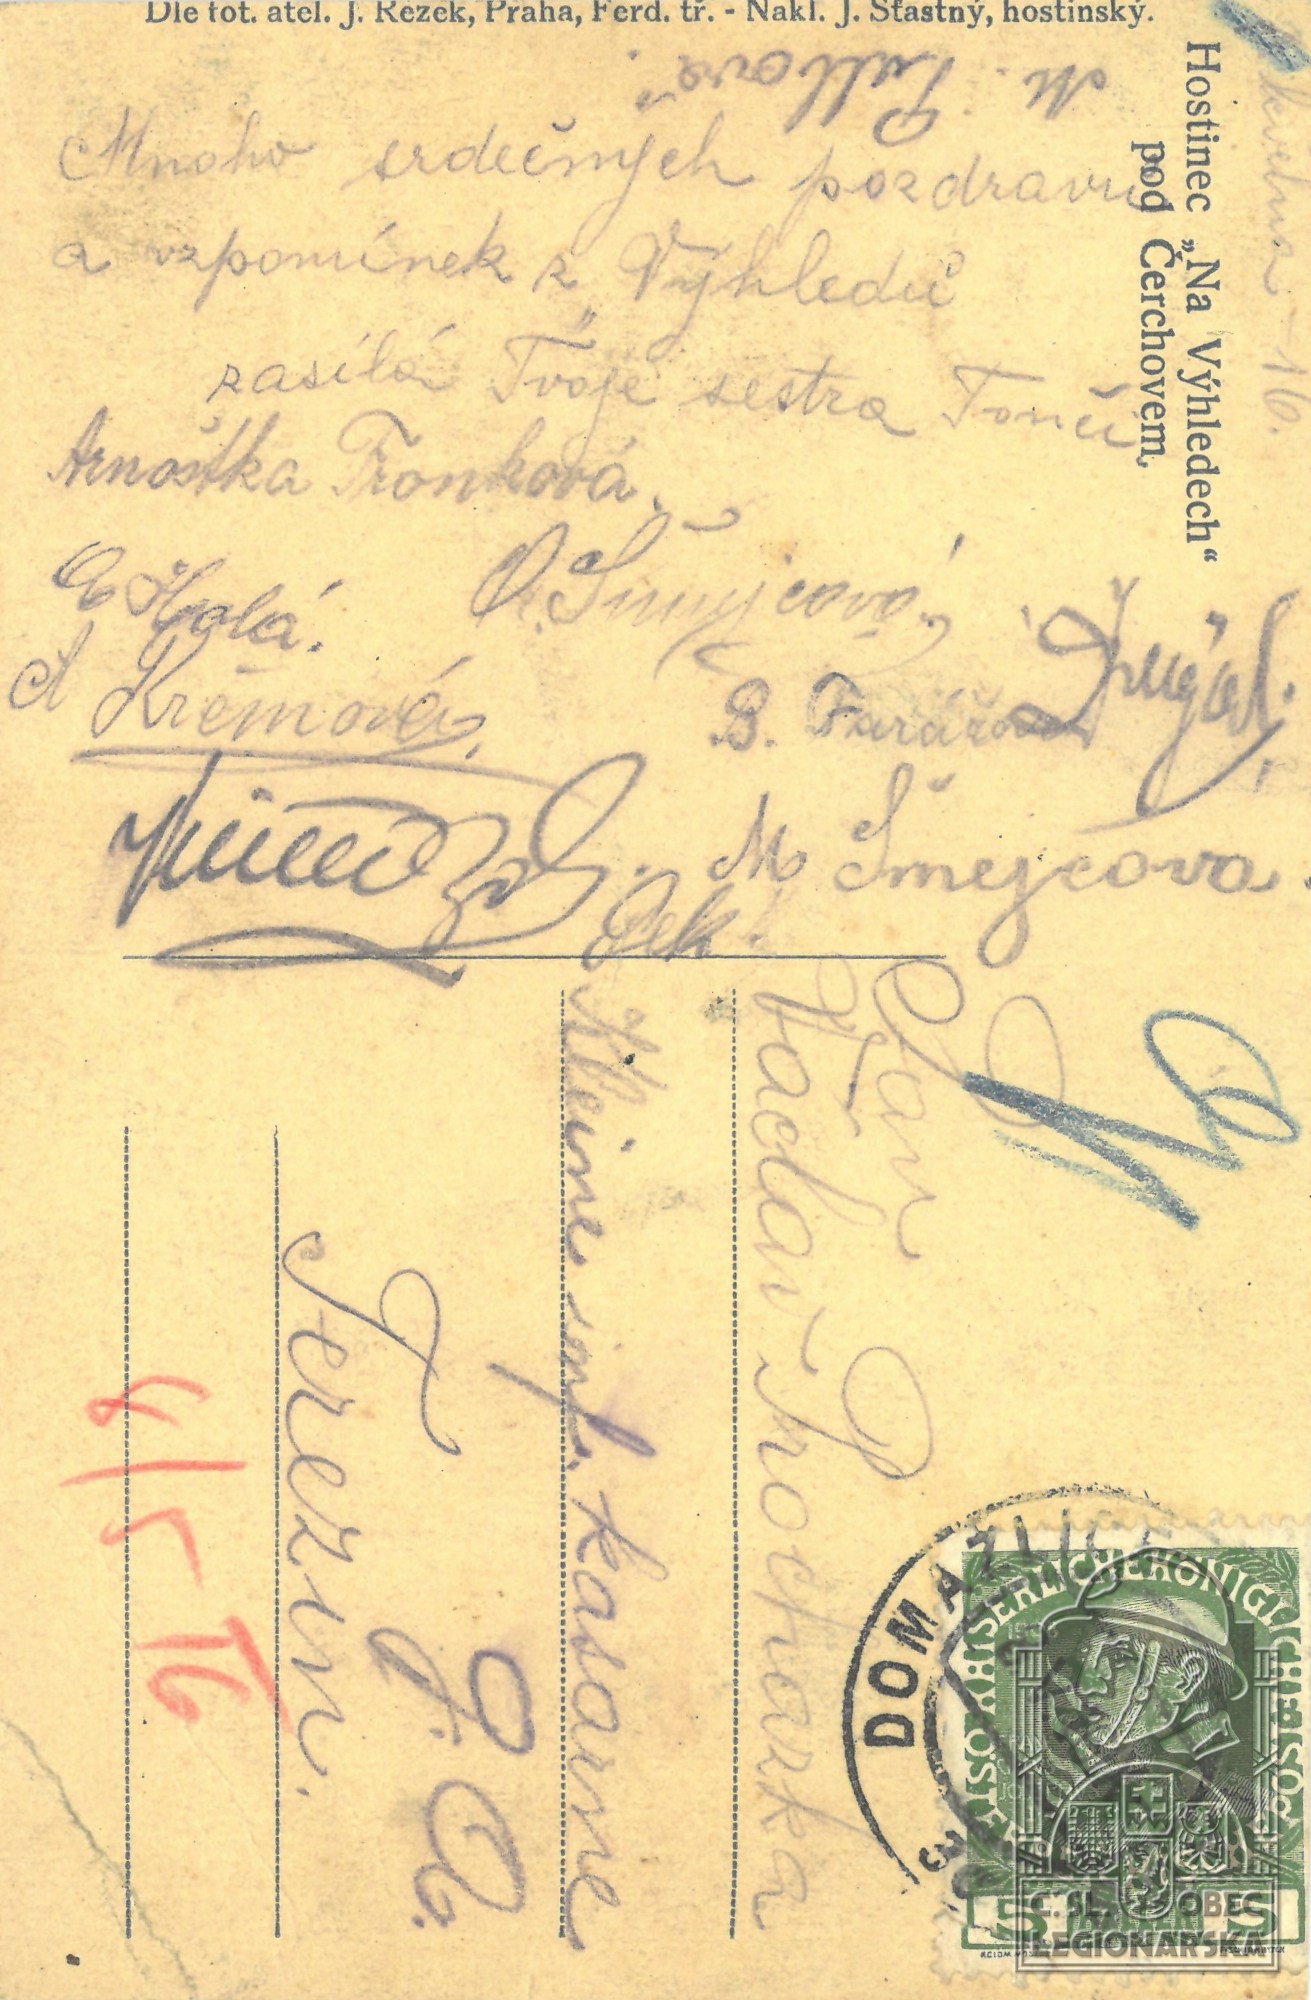 Dle fot. atel. J. Rezek, Praha, Ferd. tř. - Nakl. J. Šťastný, hostinský.
Hostinec „Na Výhledech“
pod Čerchovem.
května - 16.
Mnoho srdečných pozdravů
a vzpomínek z Výhledů
zasílá Tvoje sestra Tonči
Arnoštka Fronková.
Holá.
A Krémová.
B. Farářova
M Šmejcova.
Pan
Václav Prochazka
Kleine inf. Kasarne
Terezin.
4/5 16
DOMAŽLICE
KAISERLICHE KÖNIGLICHE
ÖSTERR. POST
5 5
Č. SL. OBEC
LEGIONÁŘSKÁ